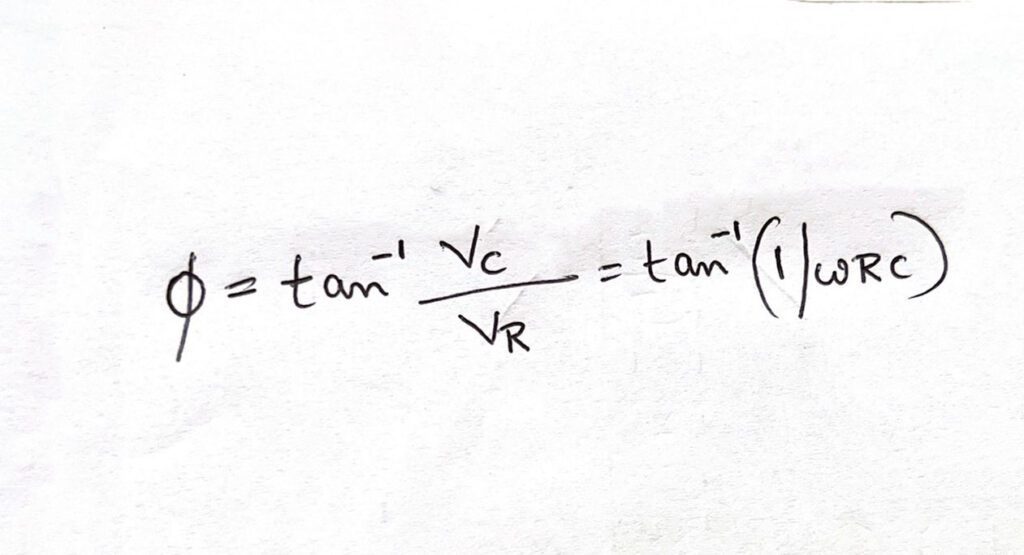 ϕ = tan⁻¹ V_C / V_R = tan⁻¹(1/ωRC)